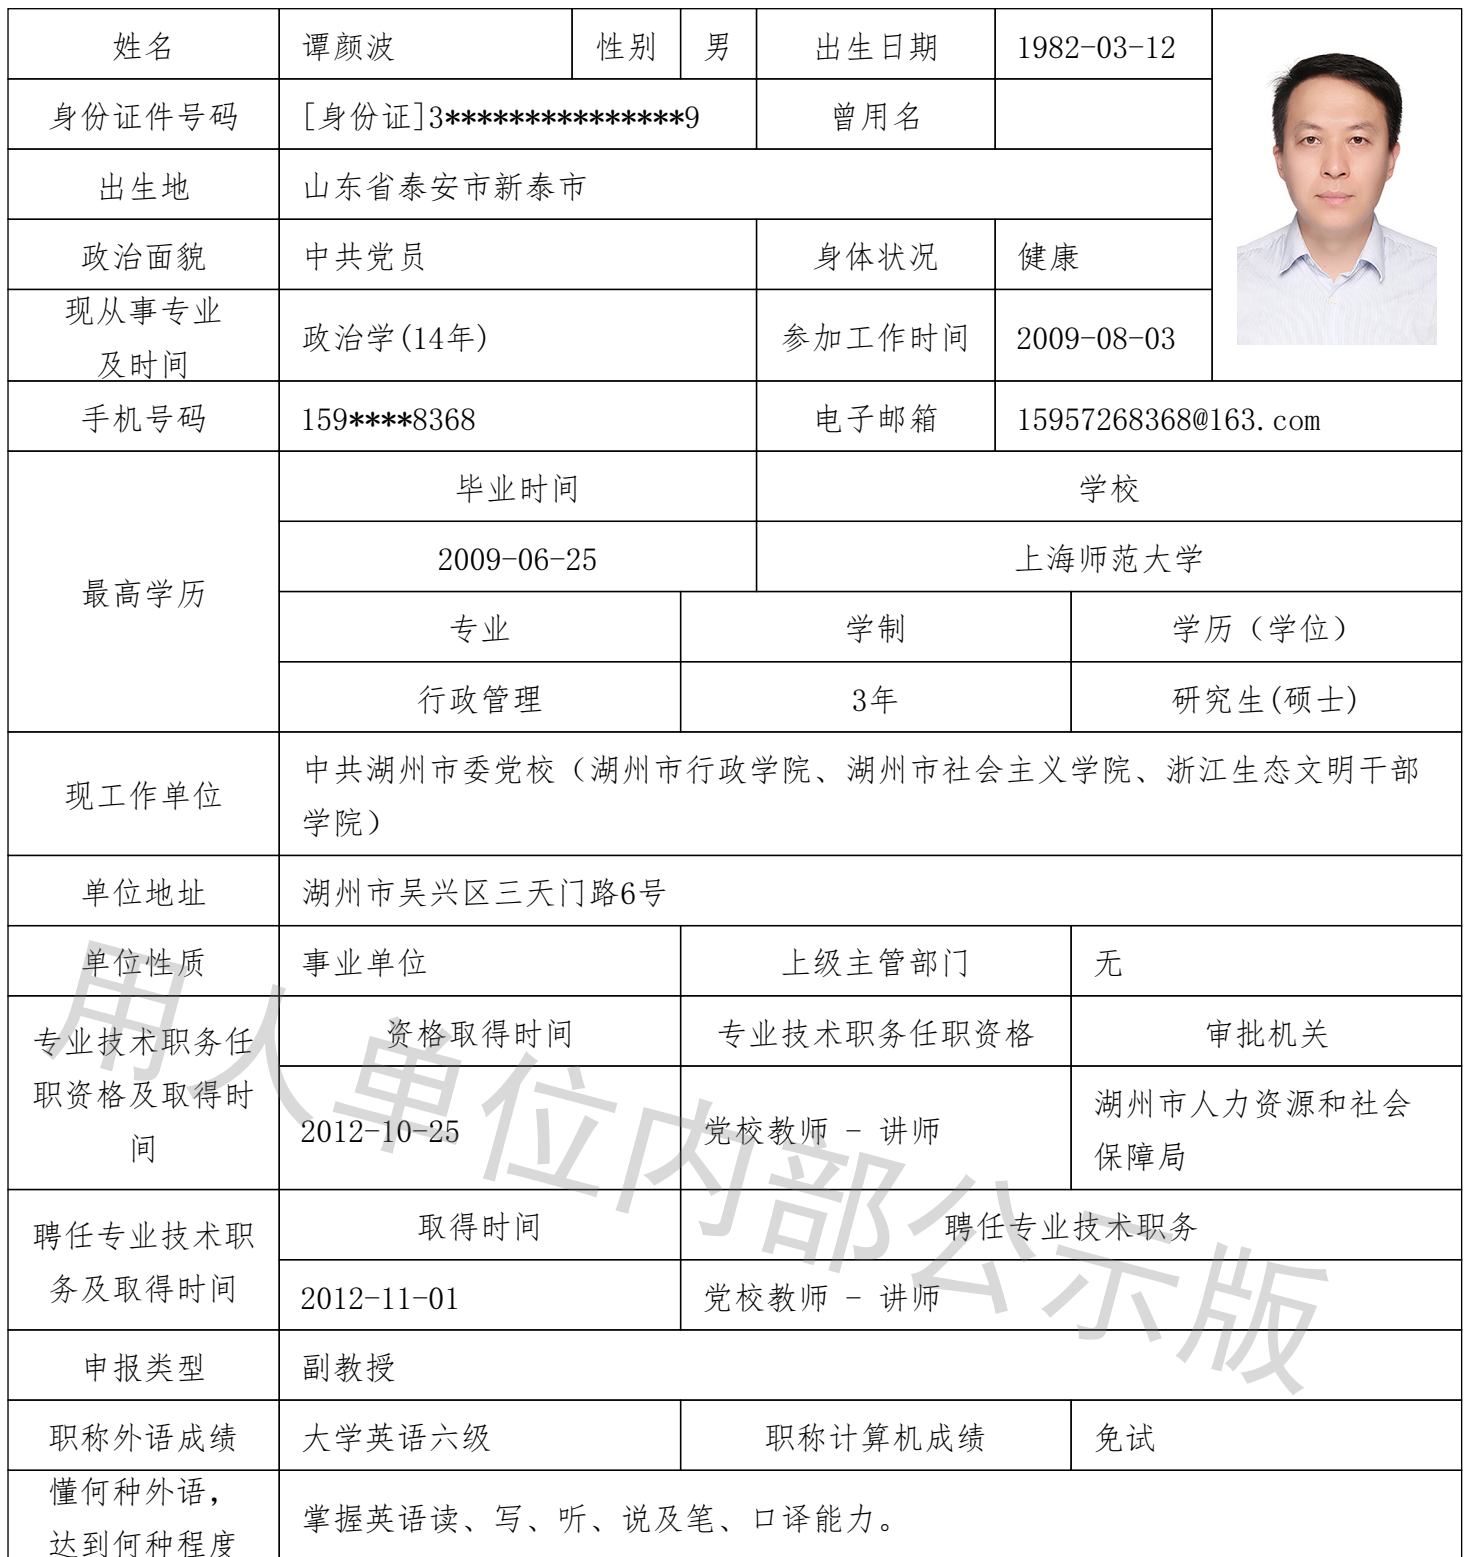 姓名 谭颜波 性别 男 出生日期 1982-03-12
身份证件号码 [身份证]3***************9 曾用名
出生地 山东省泰安市新泰市
政治面貌 中共党员 身体状况 健康
现从事专业
及时间 政治学(14年) 参加工作时间 2009-08-03
手机号码 159****8368 电子邮箱 15957268368@163.com
最高学历 毕业时间 学校
2009-06-25 上海师范大学
专业 学制 学历（学位）
行政管理 3年 研究生(硕士)
现工作单位 中共湖州市委党校（湖州市行政学院、湖州市社会主义学院、浙江生态文明干部
学院）
单位地址 湖州市吴兴区三天门路6号
单位性质 事业单位 上级主管部门 无
专业技术职务任
职资格及取得时
间 资格取得时间 专业技术职务任职资格 审批机关
2012-10-25 党校教师 - 讲师 湖州市人力资源和社会
保障局
聘任专业技术职
务及取得时间 取得时间 聘任专业技术职务
2012-11-01 党校教师 - 讲师
申报类型 副教授
职称外语成绩 大学英语六级 职称计算机成绩 免试
懂何种外语，
达到何种程度 掌握英语读、写、听、说及笔、口译能力。
用人单位内部公示版